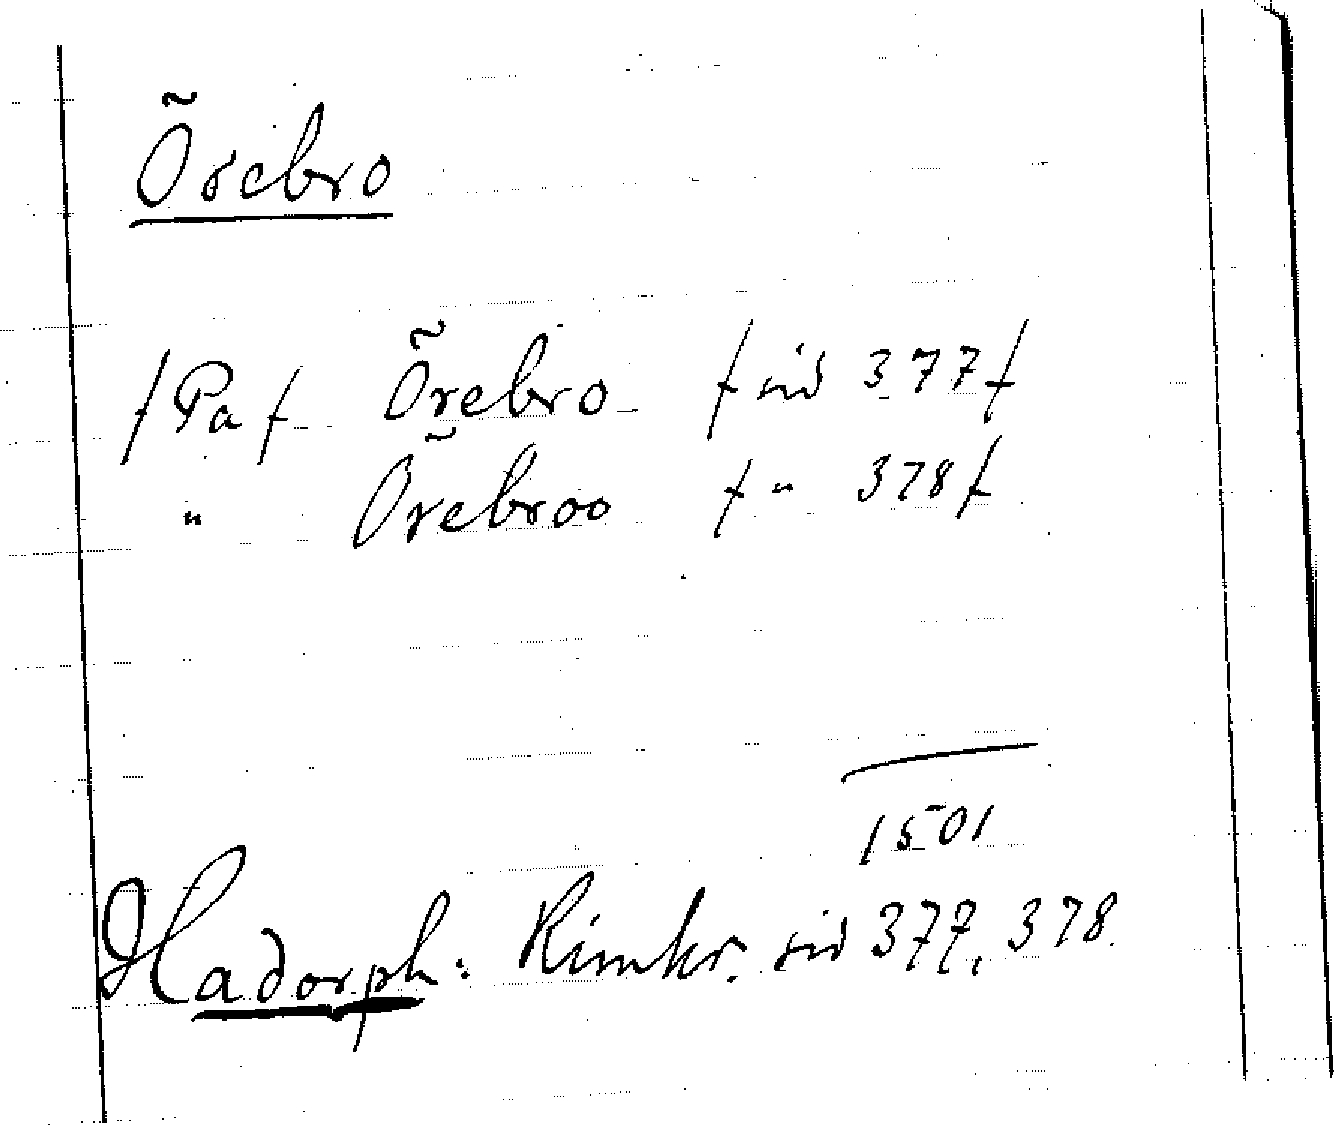 Örebro
/Pa/ Örebro /sid 377/
" Örebroo /" 378/
1501
Hadorph: Rimkr. sid 377, 378.